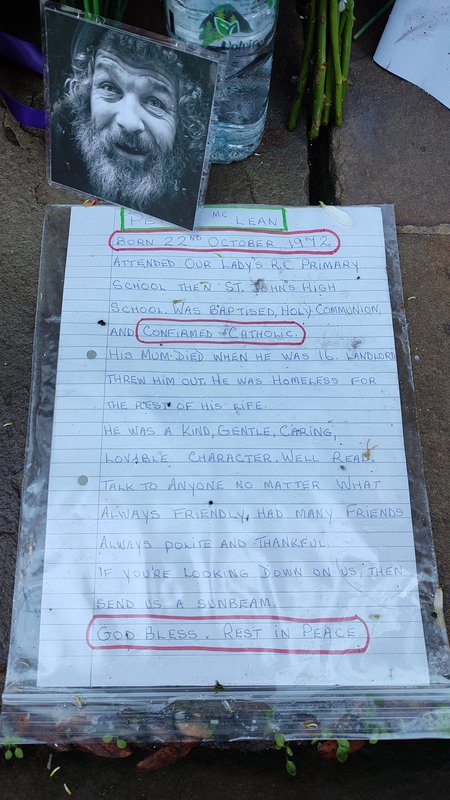 Mc LEAN
BORN 22ND OCTOBER 1972
ATTENDED OUR LADY'S R.C. PRIMARY
SCHOOL THEN ST. JOHN'S HIGH
SCHOOL. WAS BAPTISED, HOLY COMMUNION,
AND CONFIRMED CATHOLIC.
HIS MUM DIED WHEN HE WAS 16. LANDLORD
THREW HIM OUT. HE WAS HOMELESS FOR
THE REST OF HIS LIFE.
HE WAS A KIND, GENTLE, CARING,
LOVABLE CHARACTER. WELL READ.
TALK TO ANYONE NO MATTER WHAT
ALWAYS FRIENDLY, HAD MANY FRIENDS
ALWAYS POLITE AND THANKFUL.
IF YOU'RE LOOKING DOWN ON US, THEN
SEND US A SUNBEAM.
GOD BLESS. REST IN PEACE